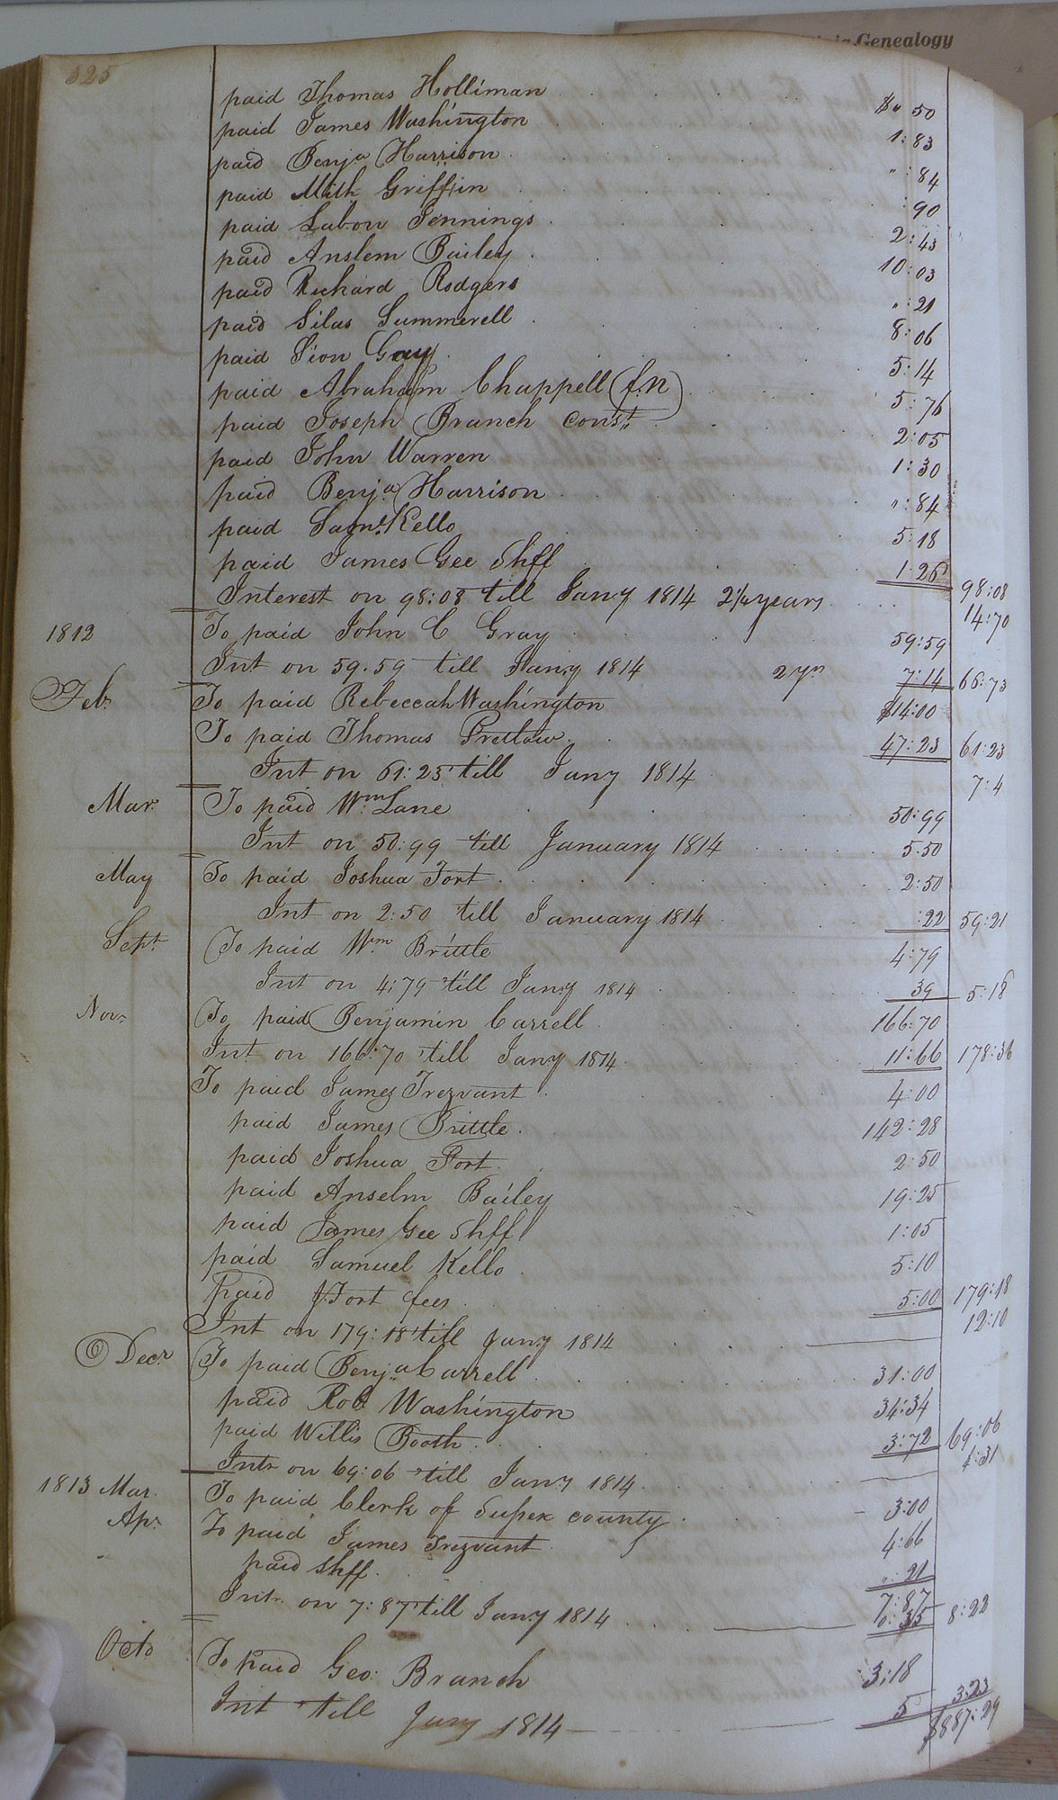 Genealogy
325
paid Thomas Holliman $" 50
paid James Washington 1:83
paid Benja Harrison ":84
paid Griffin :90
paid Labon Jennings 2:43
paid Anslem Bailey 10:03
paid Richard Rodgers ":21
paid Silas Summerell 8:06
paid Sion Gray 5:14
paid Abraham Chappell (f.n) 5:76
paid Joseph Branch const. 2:05
paid John Warren 1:30
paid Benja Harrison ":84
paid Saml. Kello 5:18
paid James Gee Shff 1:26 98:08
Interest on 98:08 till Jany 1814 2½ years 14:70
1812 To paid John C Gray 59:59
Int on 59.59 till Jany 1814 2 yrs 7:14 66:73
Feb. To paid Rebeccah Washington $14:00
To paid Thomas Pretlow 47:23 61:23
Int on 61:23 till Jany 1814 7:4
Mar. To paid Wm Lane 50:99
Int on 50:99 till January 1814 5.50
May To paid Joshua Fort 2:50
Int on 2:50 till January 1814 :22 59:21
Sept. To paid Wm Brittle 4:79
Int on 4:79 till Jany 1814 39 5:18
Nov. To paid Benjamin Carrell 166:70
Int on 166:70 till Jany 1814 11:66 178:36
To paid James Trezvant 4:00
paid James Brittle 142:28
paid Joshua Fort 2:50
paid Anselm Bailey 19:25
paid James Gee Shff 1:05
paid Samuel Kello 5:10
Paid J Fort fees 5:00 179:18
Int on 179:18 till Jany 1814 12:10
Decr To paid Benja Carrell 31:00
paid Rob Washington 34:34
paid Willis Booth 3:72 69:06
Intr on 69:06 till Jany 1814 4:31
1813 Mar. To paid Clerk of Supex county 3:00
Apr. To paid James Trezvant 4:66
paid Shff. ":21
7:87
Intr. on 7:87 till Jany 1814 0:35 8:22
Octo To paid Geo: Branch 3:18
Int till Jany 1814 5 3:23
$887:29